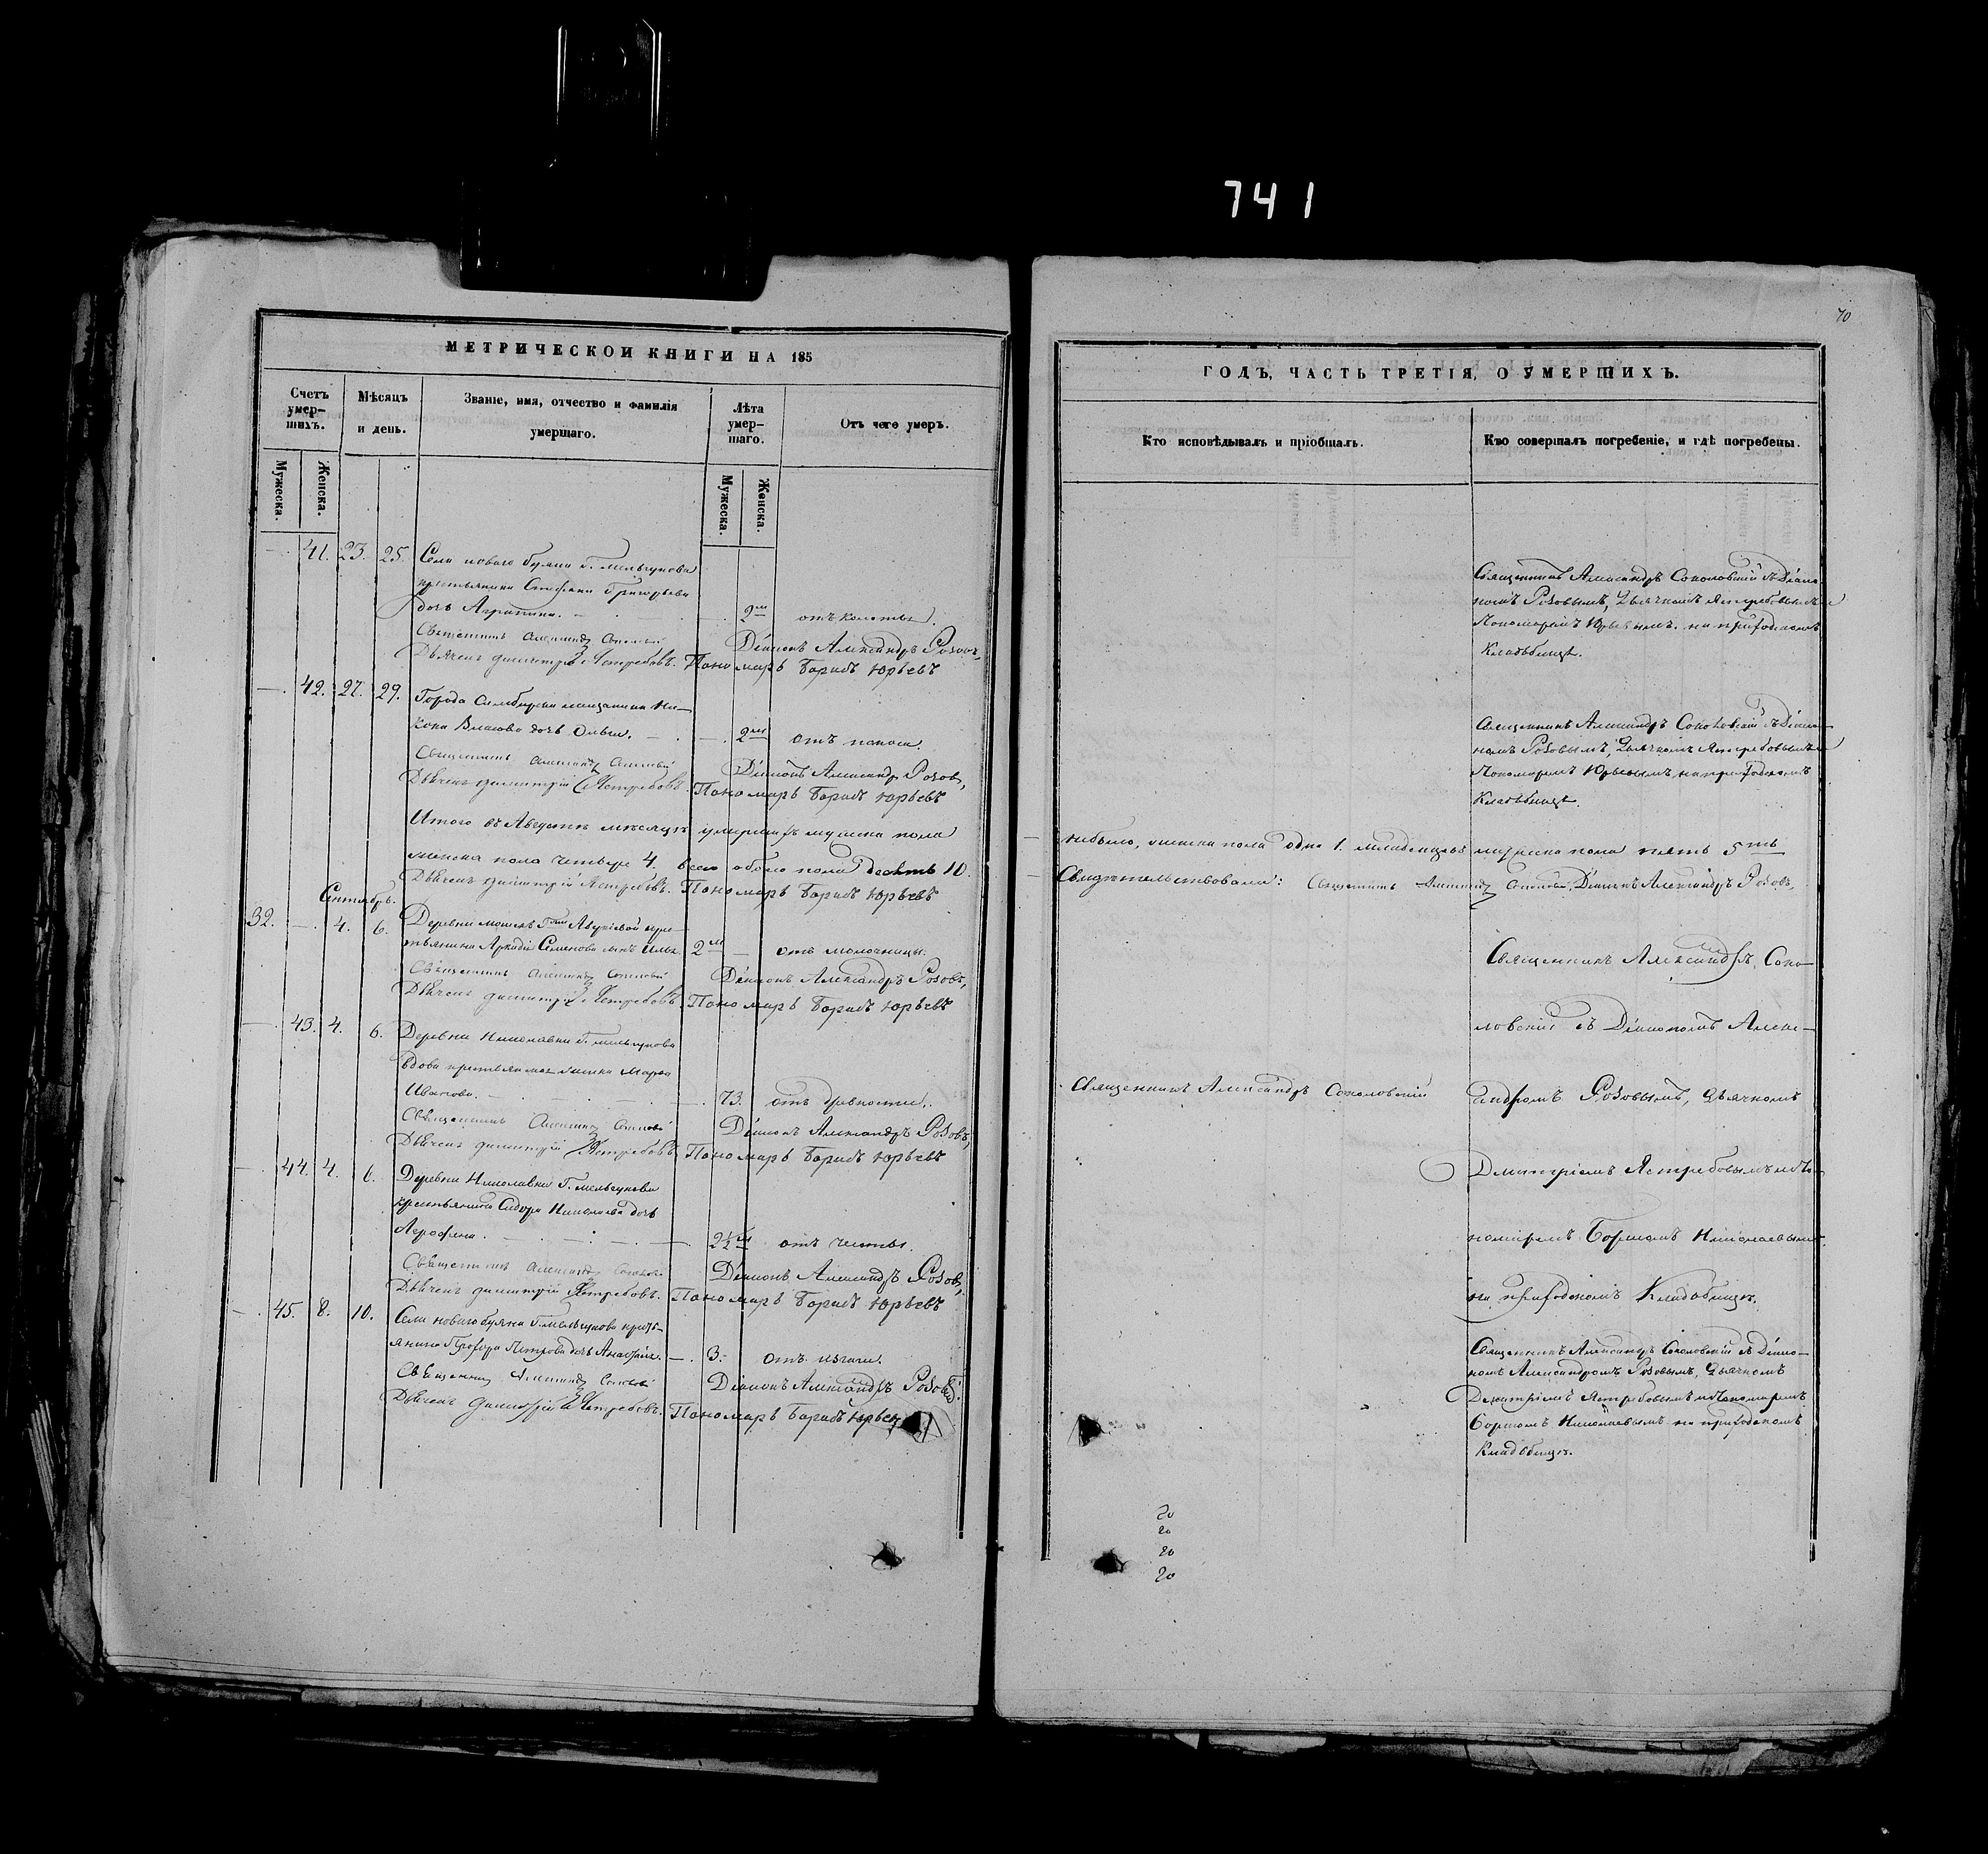 741
70
МЕТРИЧЕСКОЙ КНИГИ НА 185
Счетъ умер-шихъ.
Мужеска.
Женска.
Мѣсяцъ и день.
Званіе, имя, отчество и фамилія умершаго.
Лѣта умер-шаго.
Мужеска.
Женска.
Отъ чего умеръ.
41. 23. 25. Села новаго буяна г. мельгунова
крестьянина Стефана Григорьева
дочь Агрипина. 2м отъ колотьы.
Священникъ Александръ Діаконъ Александръ Розовъ,
Дьячекъ Димитрій Ястребовъ. Пономарь Борисъ Юрьевъ
42. 27. 29. Города Симбирска мещанина Ни-
кона Власова дочь Ольга. 2м отъ поноса.
Священникъ Александръ Діаконъ Александръ Розовъ,
Дьячекъ Димитрій Ястребовъ. Пономарь Борисъ Юрьевъ
Итого въ Августѣ мѣсяцѣ умершихъ мужеска пола
женска пола четыре 4. всего обоего пола десять 10.
Дьячекъ Димитрій Ястребовъ. Пономарь Борисъ Юрьевъ
Сентябрь.
32. 4. 6. Деревни
Аркадія Семенова сынъ Илья 2м отъ молочницы.
Священникъ Александръ Діаконъ Александръ Розовъ,
Дьячекъ Димитрій Ястребовъ. Пономарь Борисъ Юрьевъ
43. 4. 6. Деревни Николавки г. мельгунова
вдова крестьянская женка Марѳа
Иванова. 73. отъ древности.
Священникъ Александръ Діаконъ Александръ Розовъ,
Дьячекъ Димитрій Ястребовъ. Пономарь Борисъ Юрьевъ
44. 4. 6. Деревни Николавки г. мельгунова
крестьянина Сидора Николаева дочь
2½м отъ
Священникъ Александръ Діаконъ Александръ Розовъ,
Дьячекъ Димитрій Ястребовъ. Пономарь Борисъ Юрьевъ
45. 8. 10. Села новаго буяна г. мельгунова кресть-
янина Прохора Петрова дочь 3. отъ
Священникъ Александръ Діаконъ Александръ Розовъ.
Дьячекъ Димитрій Ястребовъ. Пономарь Борисъ Юрьевъ
ГОДЪ, ЧАСТЬ ТРЕТІЯ, О УМЕРШИХЪ.
Кто исповѣдывалъ и пріобщалъ.
Кто совершалъ погребеніе, и гдѣ погребены.
Священникъ Александръ Соколовскій съ Діако-
номъ Розовымъ, Дьячкомъ Ястребовымъ и
Пономаремъ Юрьевымъ на приходскомъ
Кладбищѣ.
Священникъ Александръ Соколовскій съ Діако-
номъ Розовымъ, Дьячкомъ Ястребовымъ и
Пономаремъ Юрьевымъ на приходскомъ
Кладбищѣ.
небыло, женска пола одна 1. младенцевъ мужеска пола пять 5ть
Свидѣтельствовали: Священникъ Александръ Діаконъ Александръ Розовъ,
Священникъ Александръ Соко-
ловскій съ Діакономъ Алекс-
Священникъ Александръ Соколовскій
андромъ Розовымъ, Дьячкомъ
Дмитріемъ Ястребовымъ и По-
номаремъ Борисомъ Николаевымъ
на приходскомъ Кладбищѣ.
Священникъ Александръ Соколовскій съ Діако-
номъ Александромъ Розовымъ, Дьячкомъ
Дмитріемъ Ястребовымъ и Пономаремъ
Борисомъ Николаевымъ на приходскомъ
Кладбищѣ.
20
20
20
20